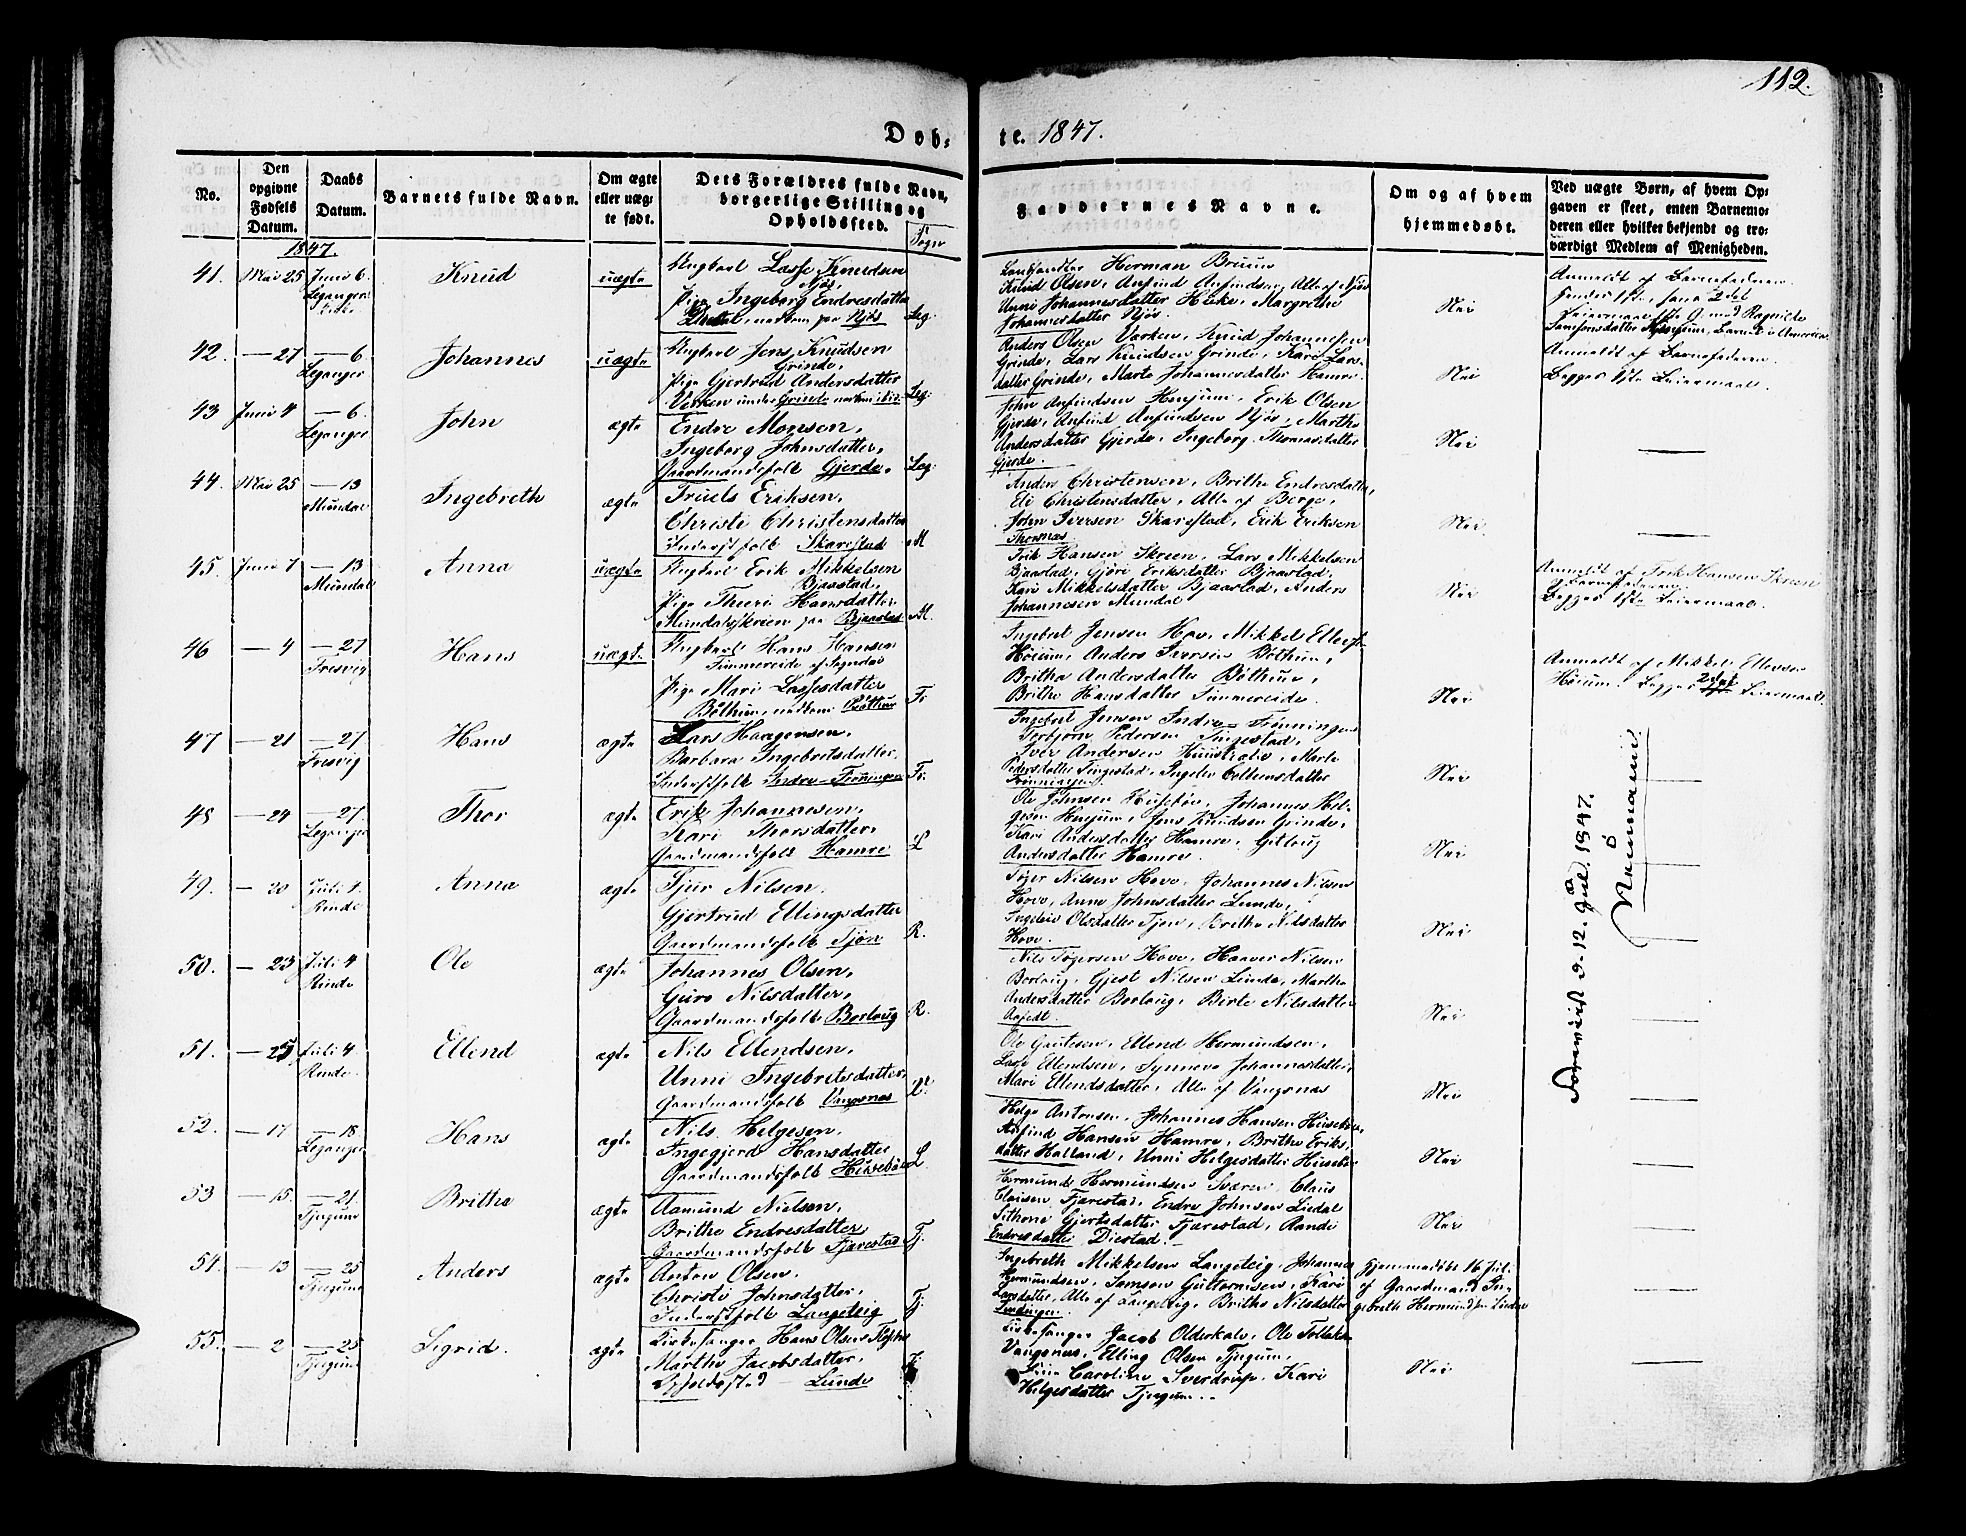 112.
Døb-
te. 1847.
No.
Den opgivne Fødsels Datum.
Daabs Datum.
Barnets fulde Navn.
Om ægte eller uægte født.
Dets Forældres fulde Navn, borgerlige Stilling og Opholdssted.
Sogn
Faddernes Navne.
Om og af hvem hjemmedøbt.
Ved uægte Børn, af hvem Opgaven er skeet, enten Barnemoderen eller hvilket bekjendt og troværdigt Medlem af Menigheden.
1847.
41. Mai 25 Juni 6. Knud uægte Ungkarl Lasse Knudsen
Leganger Kirke
Njøs,
Pige Ingeborg Endresdatter
nedkom paa Njøs Leg:
Herman Bruun
Olsen, Anfind Anfindsen, Alle af Njøs
Unni Johannesdatter Margrethe
Johannesdatter Njøs.
Nei
Anmeldt af Barnefaderen.
42. — 27 — 6 Johannes uægte Ungkarl Jens Knudsen
Leganger
Grinde,
Pige Gjertrud Andersdatter
Varken under Grinde Leg:
Anders Olsen Varken, Knud Johannesen
Grinde, Lars Knudsen Grinde, Kari Lars-
datter Grinde, Marte Johannesdatter Hamre.
Nei
Anmeldt af Barnefaderen.
Begges 1ste Leiermaal.
43 Juni 4 — 6. John ægte Endre Monsen,
Leganger
Ingeborg Johnsdatter,
Gaardmandsfolk Gjerde. Leg:
John Anfindsen Henjum, Erik Olsen
Gjerde, Anfind Anfindsen Njøs, Martha
Andersdatter Gjerde, Ingeborg Thomasdatter
Gjerde.
Nei
44. Mai 25 — 13 Ingebreth ægte Truels Eriksen,
Mundal
Christi Christensdatter
Inderstfolk Skarestad M
Anders Christensen, Brithe Endresdatter,
Eli Christensdatter, Alle af Berge,
John Iversen Skarestad, Erik Eriksen
Nei
45. Juni 7 — 13 Anna uægte Ungkarl Erik Mikkelsen
Mundal
Bjaastad,
Pige Thuri Hansdatter
Mundalsskreen paa Bjaastad M.
Erik Hansen Skreen, Lars Mikkelsen
Bjaastad, Gjøri Eriksdatter Bjaastad,
Kari Mikkelsdatter Bjaastad, Anders
Johannesen Mundal
Nei
Anmeldt af Erik Hansen Skreen
Begges 1ste Leiermaal.
46 — 4 — 27 Hans uægt. Ungkarl Hans Hansen
Fresvig
Timmereide af Sogndal
Pige Mari Lassesdatter
Bøthun, nedkom Bøthun Fr
Ingebret Jensen Hov, Mikkel Ellevsen
Høium, Anders Iversen Bøthun,
Britha Andersdatter Bøthun,
Brithe Hansdatter Timmereide.
Nei
Anmeldt af Mikkel Ellevsen
Høium. Begges 2det Leiermaal.
47 — 21 — 27 Hans ægte Lars Haagensen,
Fresvig
Barbara Ingebretsdatter
Inderstfolk Indre-Frønningen Fr:
Ingebret Jensen Indre-Frønningen
Torbjørn Pedersen Tingestad,
Iver Andersen Marte
Pedersdatter Tingestad,
Frønningen
Nei
48 — 24 — 27. Thor ægte Erik Johannesen,
Leganger
Kari Thorsdatter,
Gaardmandsfolk Hamre L
Ole Johnsen Husebøe, Johannes Hel-
gesen Henjum, Jens Knudsen Grinde,
Kari Andersdatter Hamre, Gitlaug
Andersdatter Hamre.
Nei
49. — 20 Juli 4. Anna ægte Sjur Nilsen.
Rinde
Gjertrud Ellingsdatter
Gaardmandsfolk Tjøn R.
Tøger Nilsen Hove, Johannes Nilsen
Hove, Anne Johnsdatter Lunde,
Ingebor Olsdatter Tjøn, Brithe Nilsdatter
Hove.
Nei
50. — 23 Juli 4 Ole ægte Johannes Olsen,
Rinde
Guro Nilsdatter,
Gaardmandsfolk Borlaug R.
Nils Tøgersen Hove, Haaver Nilsen
Borlaug, Gjest Nilsen Lunde, Martha
Andersdatter Borlaug, Birte Nilsdatter
Nei
51. — 25 Juli 4 Ellend ægte Nils Ellendsen,
Rinde.
Unni Ingebretsdatter,
Gaardmandsfolk Vangsnes
Ole Gautesen, Ellend Hermundsen,
Lasse Ellendsen, Synneva Johannesdatter,
Mari Ellendsdatter, Alle af Vangsnes
Nei
52. — 17 — 18. Hans ægte Nils Helgesen,
Leganger
Ingegjerd Hansdatter
Gaardmandsfolk Husebøe L.
Helge Antonsen, Johannes Hansen Husebøe,
Anfind Hansen Hamre, Brithe Eriks-
datter Halland, Unni Helgesdatter Husebøe
Nei
53 — 15. — 21. Brithe ægte Aamund Nielsen,
Tjugum
Brithe Endresdatter
Gaardmandsfolk Fjærestad Tj.
Hermund Hermundsen Sværen, Claus
Claisen Fjærestad, Endre Johnsen Liedal
Sithone Gjertsdatter Fjærestad, Randi
Endresdatter Diestad.
Nei
54. — 13 — 25 Anders ægte Anton Olsen,
Tjugum
Christi Johnsdatter,
Inderstfolk Langeteig Tj.
Ingebreth Mikkelsen Langeteig, Johannes
Hermundsen, Samson Guttormsen, Kari
Larsdatter, Alle af Langeteig, Brithe Nilsdatter
Hjemmedøbt 16 Juli
af Gaardmand In-
gebreth Hermundsen
55. — 2 — 25 Sigrid. ægte Kirkesanger Hans Olsen
Tjugum
Marthe Jacobsdatter,
Opholdssted — Lunde Tj.
Kirkesanger Jacob Olderkale, Ole
Vangsnes, Elling Olsen Tjugum,
Caroline Sverdrup, Kari
Helgesdatter Tjugum.
Nei
d. 12. 1847.